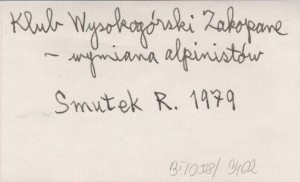 Klub Wysokogórski Zakopane
- wymiana alpinistów
Smutek R. 1979